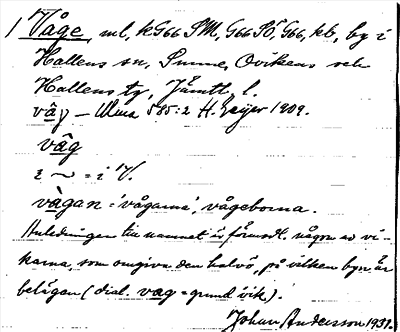 1 Våge, ml, k G66 SM, G66 SÖ, G66, kb, by i
Hallens sn, Sunne, Ovikens och
Hallens tg, Jämtl. l.
vâg – Ulma 585:2 H. Geijer 1909.
vâg
i ~ = i V.
vàgan = 'vågarna', vågeborna.
Anledningen till namnet är förmodl. någon av vi-
karna, som omgiva den halvö, på vilken byn är
belägen (dial. vag = grund vik).
Johan Andersson 1931.